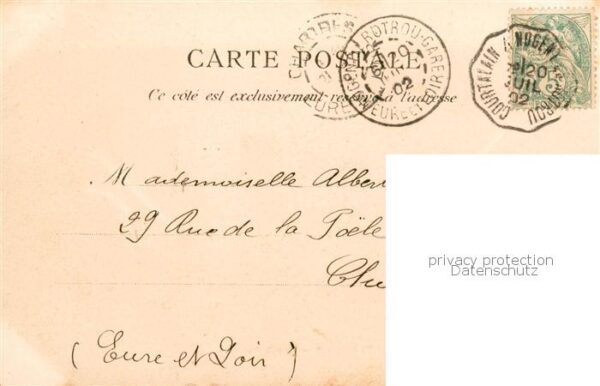 CARTE POSTALE
Ce côté est exclusivement réservé à l'adresse
NOGENT-LE-ROTROU-GARE
20
02
EURE-ET-LOIR
CHARTRES
EURE
COURTALAIN A NOGENT-LE-ROTROU
20
JUIL
02
Mademoiselle Albert
29 Rue de la Poële
(Eure et Loir)
privacy protection
Datenschutz